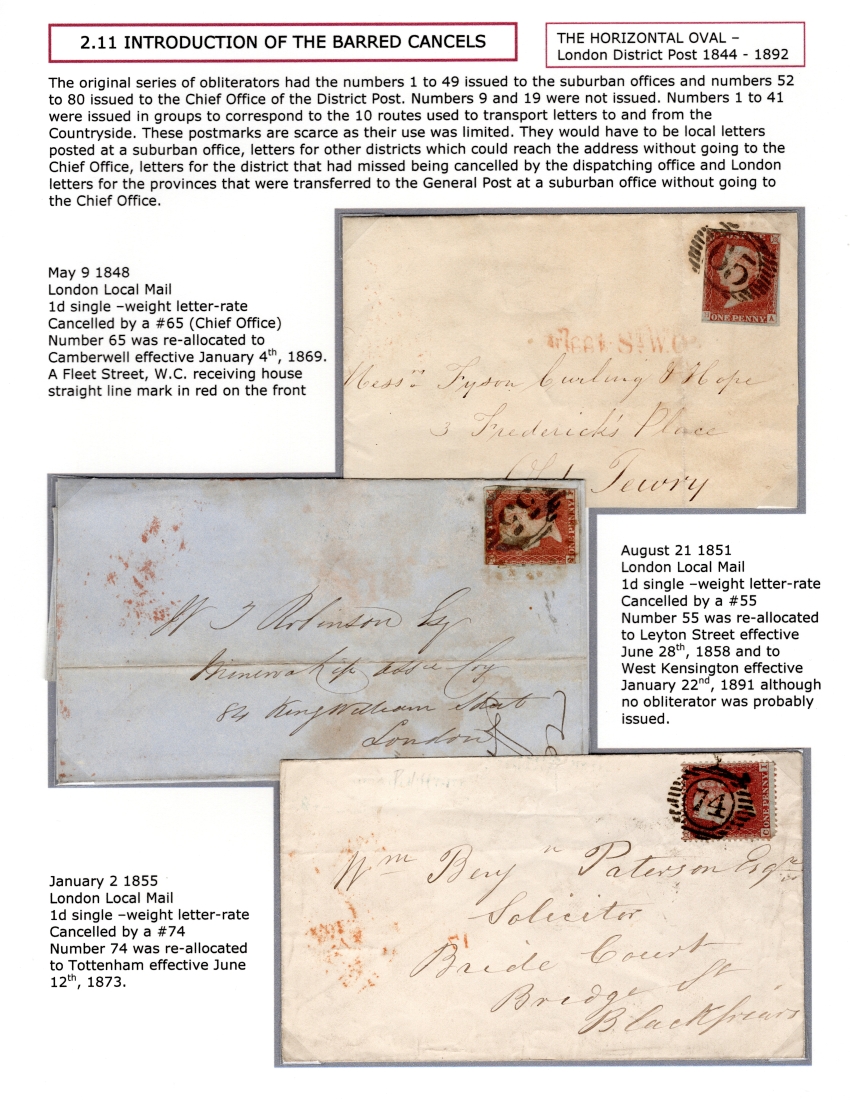 2.11 INTRODUCTION OF THE BARRED CANCELS
THE HORIZONTAL OVAL –
London District Post 1844 - 1892
The original series of obliterators had the numbers 1 to 49 issued to the suburban offices and numbers 52
to 80 issued to the Chief Office of the District Post. Numbers 9 and 19 were not issued. Numbers 1 to 41
were issued in groups to correspond to the 10 routes used to transport letters to and from the
Countryside. These postmarks are scarce as their use was limited. They would have to be local letters
posted at a suburban office, letters for other districts which could reach the address without going to the
Chief Office, letters for the district that had missed being cancelled by the dispatching office and London
letters for the provinces that were transferred to the General Post at a suburban office without going to
the Chief Office.
May 9 1848
London Local Mail
1d single –weight letter-rate
Cancelled by a #65 (Chief Office)
Number 65 was re-allocated to
Camberwell effective January 4th, 1869.
A Fleet Street, W.C. receiving house
straight line mark in red on the front
ONE PENNY A
St W.O
Messrs Tyson Curling & Hope
3 Frederick's Place
Old Jewry
W J Robinson Esq
84 King William Street
London
August 21 1851
London Local Mail
1d single –weight letter-rate
Cancelled by a #55
Number 55 was re-allocated
to Leyton Street effective
June 28th, 1858 and to
West Kensington effective
January 22nd, 1891 although
no obliterator was probably
issued.
74
ONE PENNY
Wm Benj n Paterson Esqre
Solicitor
Bride Court
Bridge St
Blackfriars
January 2 1855
London Local Mail
1d single –weight letter-rate
Cancelled by a #74
Number 74 was re-allocated
to Tottenham effective June
12th, 1873.